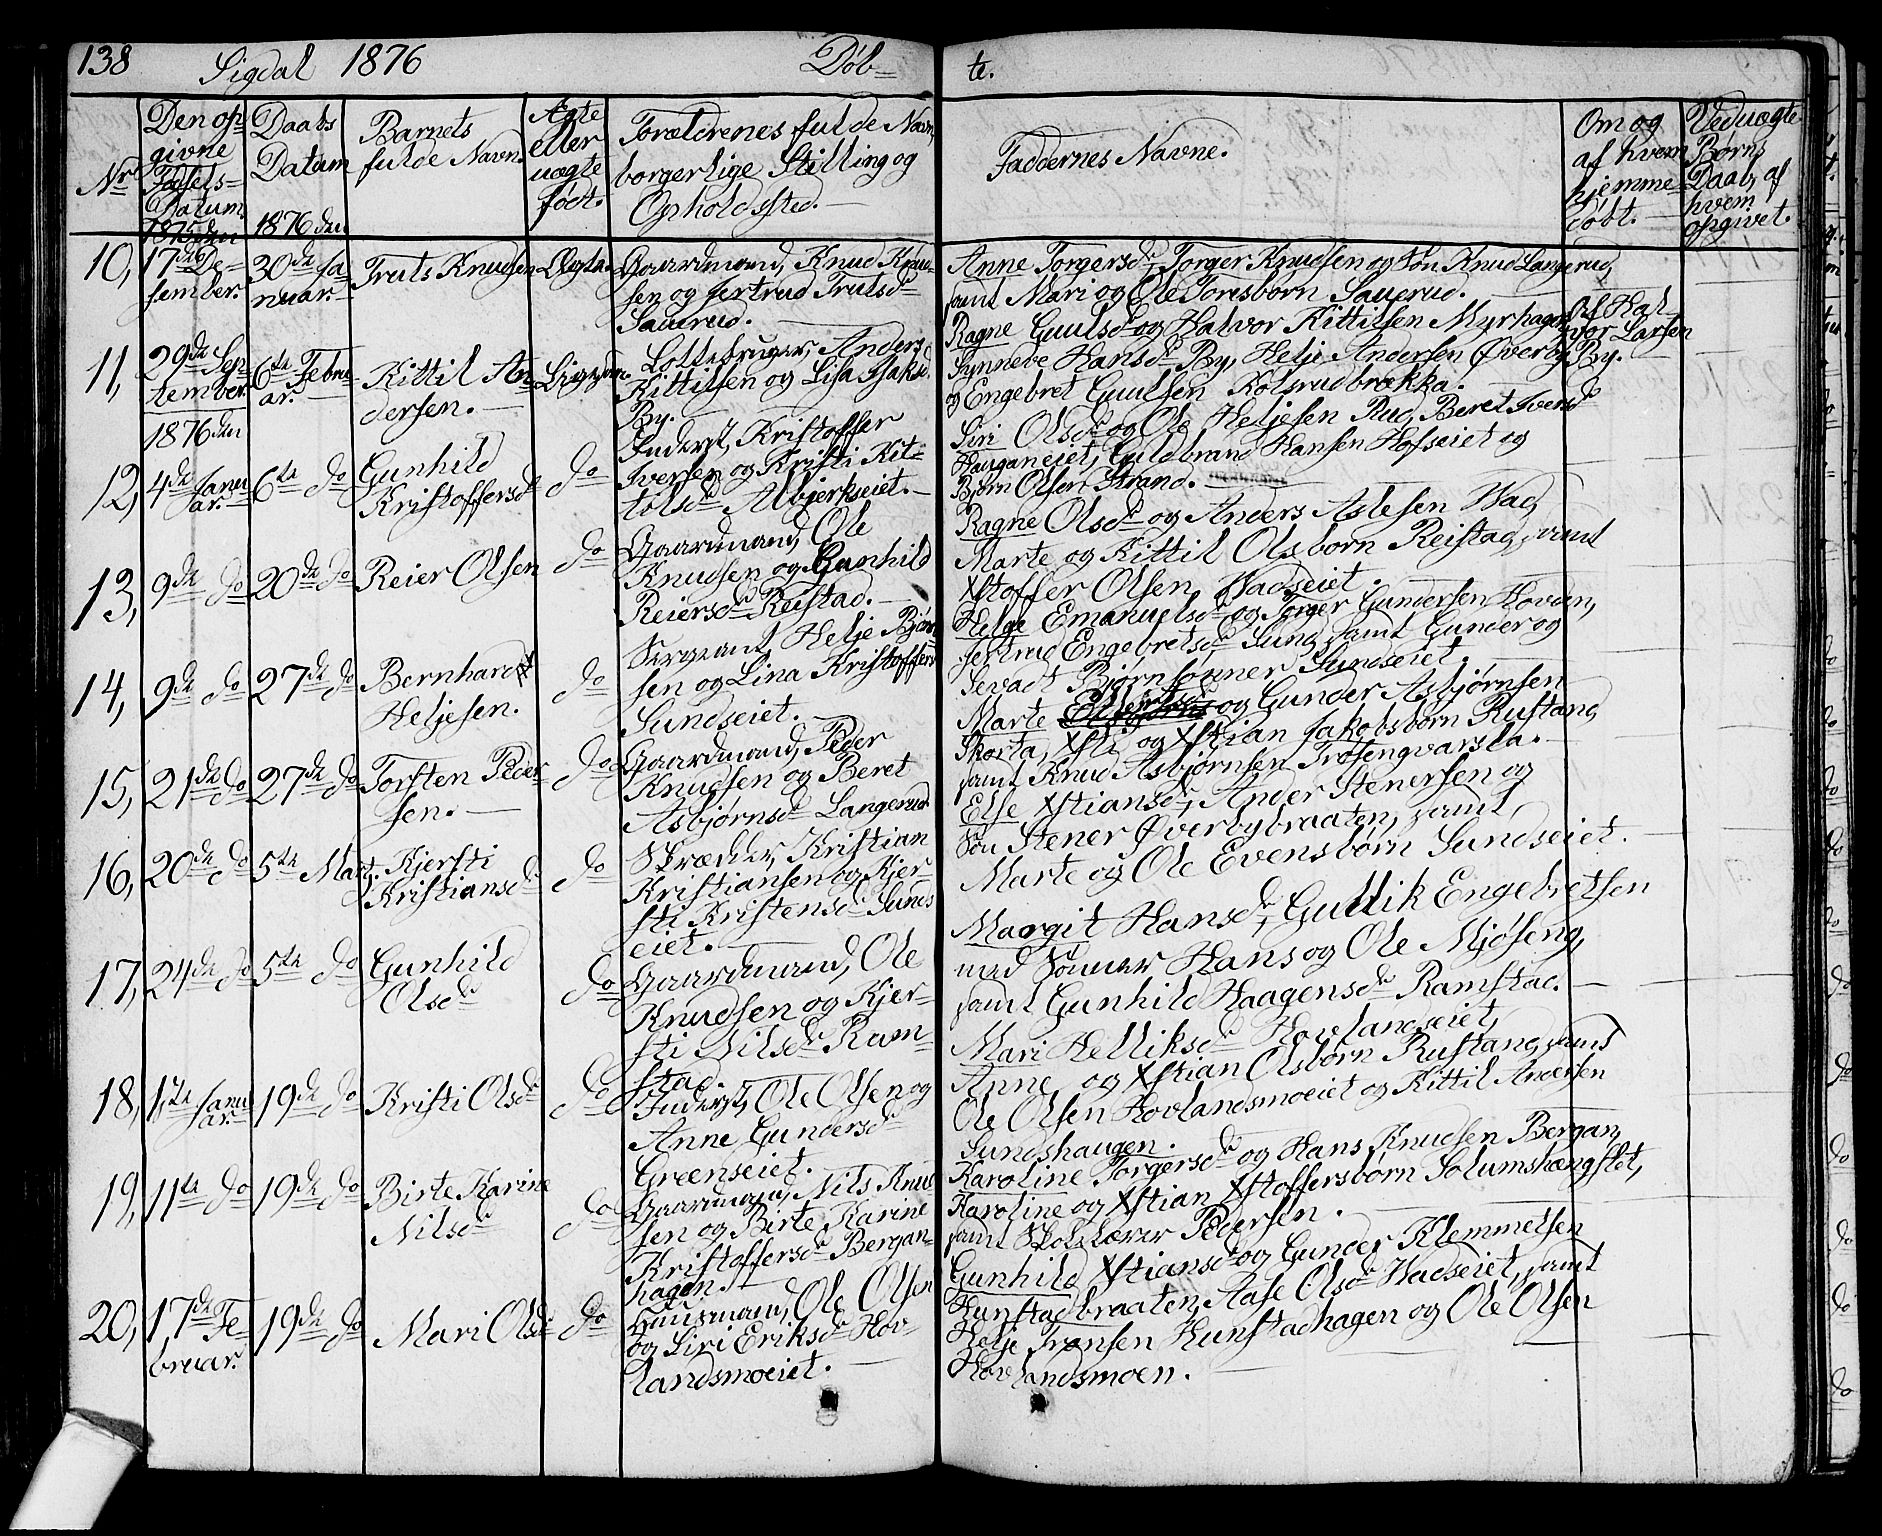 138 Sigdal 1876 Døb= te.
Nr.
Den op-
givne
Fødsels=
Datum.
1875 den
Daabs
Datum
1876 den
Barnets
fulde Navn.
Ægte
eller
uægte
født.
Forældrenes fulde Navn,
borgerlige Stilling og
Opholdssted.
Faddernes Navne.
Om og
af hvem
hjemme=
døbt.
Ved uægte
Børns
Daab, af
hvem
opgivet.
10, 17de De-
sember. 30de Ja-
nuar. Truls Knudsen Ægte. Gaardmand, Knud Knud-
sen og Jertrud Trulsdr
Sauerud.
Anne Torgersdr, Torger Knudsen og Søn Knud Langerud,
samt Mari og Ole Toresbørn Sauerud.
11, 29de Sep-
tember. 6te Febru-
ar. Kittil An-
dersen. Uægte. Løttebruger, Anders
Kittilsen og Lisa Isaksd.
By.
Ragne Guulsdr og Halvor Kittilsen Myrhagen,
Synneve Hansdr By, Helje Andersen Øverby
og Engebret Guulsen Kolsrudbrækka.
Af Hal-
vor Larsen
By.
1876 den
12, 4de Janu-
ar. 6te do Gunhild
Kristoffersdr do Inderst, Kristoffer
Iversen og Kristi Kit-
tolsdr Albjerkseiet.
Siri Olsdr og Ole Heljesen Rud, Beret Iversd
Hauganeiet, Guldbrand Hansen Hofseiet og
Bjørn Olsen Strand.
13, 9de do 20de do Reier Olsen do Gaardmand, Ole
Knudsen og Gunhild
Reiersdr Reistad.
Ragne Olsdr og Anders Aslesen Wad,
Marte og Kittil Olsbørn Reistad, samt
Xstoffer Olsen Wadseiet.
14, 9de do 27de do Bernhardt
Heljesen. do Sergeant, Helje Bjørn-
sen og Lina Kristoffersd
Sundseiet.
Helge Emanuelsdr og Torger Gundersen Hovden,
Jertrud Engebretsdr Sund, samt Gunder og
Sevadt Bjørnsønner Sundseiet.
15, 21de do 27de do Torsten Peder-
sen. do Gaardmand, Peder
Knudsen og Beret
Asbjørnsdr Langerud
Marte og Gunder Asbjørnsen
Skorta, Xsti og Xstian Jakobsbørn Rustand
samt Knud Asbjørnsen Trosengvarsla.
16, 20de do 5te Mart. Kjersti
Kristiansdr do Skrædder, Kristian
Kristiansen og Kjer-
sti Kristensdr Sunds
eiet.
Else Xstiansdr, Ander Stenersen og
Søn Stener Øverbybraaten, samt
Marte og Ole Evensbørn Sundseiet.
17, 24de do 5te do Gunhild
Olsdr do Gaardmand, Ole
Knudsen og Kjer-
sti Nilsdr Ram-
stad.
Margit Hansdr, Gullik Engebretsen
med Sønner Hans og Ole Mjøseng,
samt Gunhild Haagensdr Ramstad.
18, 1ste Janu-
ar. 19de do Kristi Olsdr do Inderst, Ole Olsen og
Anne Gundersdr
Greenseiet.
Mari Helliksdr Hovlandseiet,
Anne og Xstian Olsbørn Rustand, samt
Ole Olsen Hovlandsmoeiet og Kittil Andersen
Sundshaugen.
19, 11te do 19de do Birte Karine
Nilsdr do Gaardmand, Nils Knud
sen og Birte Karine
Kristoffersdr Bergan-
hagen.
Karoline Torgersdr og Hans Knudsen Bergan,
Karoline og Xstian Xstoffersbørn Solumshængslet,
samt Skolelærer Pedersen.
20, 17de Fe-
bruar. 19de do Mari Olsdr do Huusmand, Ole Olsen
og Siri Eriksdr Hov-
landsmoeiet.
Gunhild Xstiansd og Gunder Klemmetsen
Hunstadbraaten, Aase Olsdr Wadseiet, samt
Helje Iversen Hunstadhagen og Ole Olsen
Hovlandsmoen.